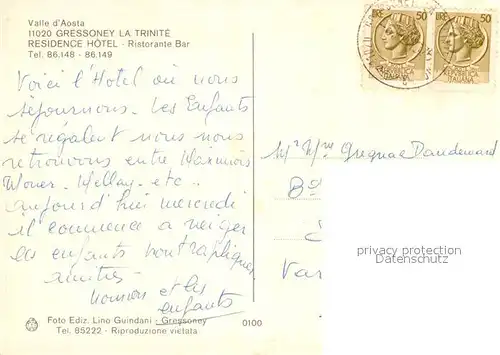 Valle d'Aosta
11020 GRESSONEY LA TRINITÉ
RESIDENCE HÔTEL - Ristorante Bar
Tel. 86.148 - 86.149
LIRE 50
LIRE 50
Voici l'Hotel où nous
séjournons. Les Enfants
se régalent nous nous
retrouvons entre
etc..
aujourd'hui mercredi
il commence a neiger
les enfants sont
amitiés
et les
enfants
Mr Mme Dandeward
privacy protection
Datenschutz
Foto Ediz. Lino Guindani - Gressoney
Tel. 85222 - Riproduzione vietata
0100